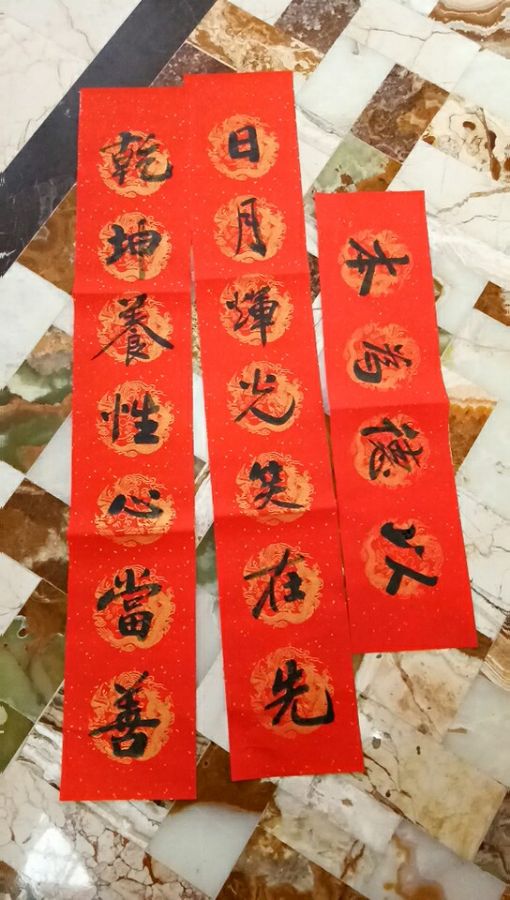 以德為本
日月輝光笑在先
乾坤養性心當善